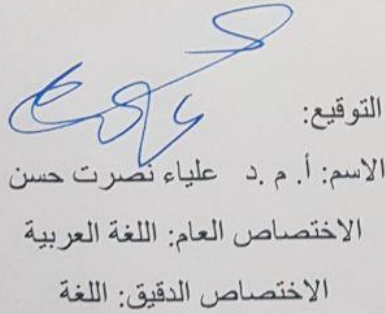 التوقيع:
الاسم: أ. م .د علياء نصرت حسن
الاختصاص العام: اللغة العربية
الاختصاص الدقيق: اللغة